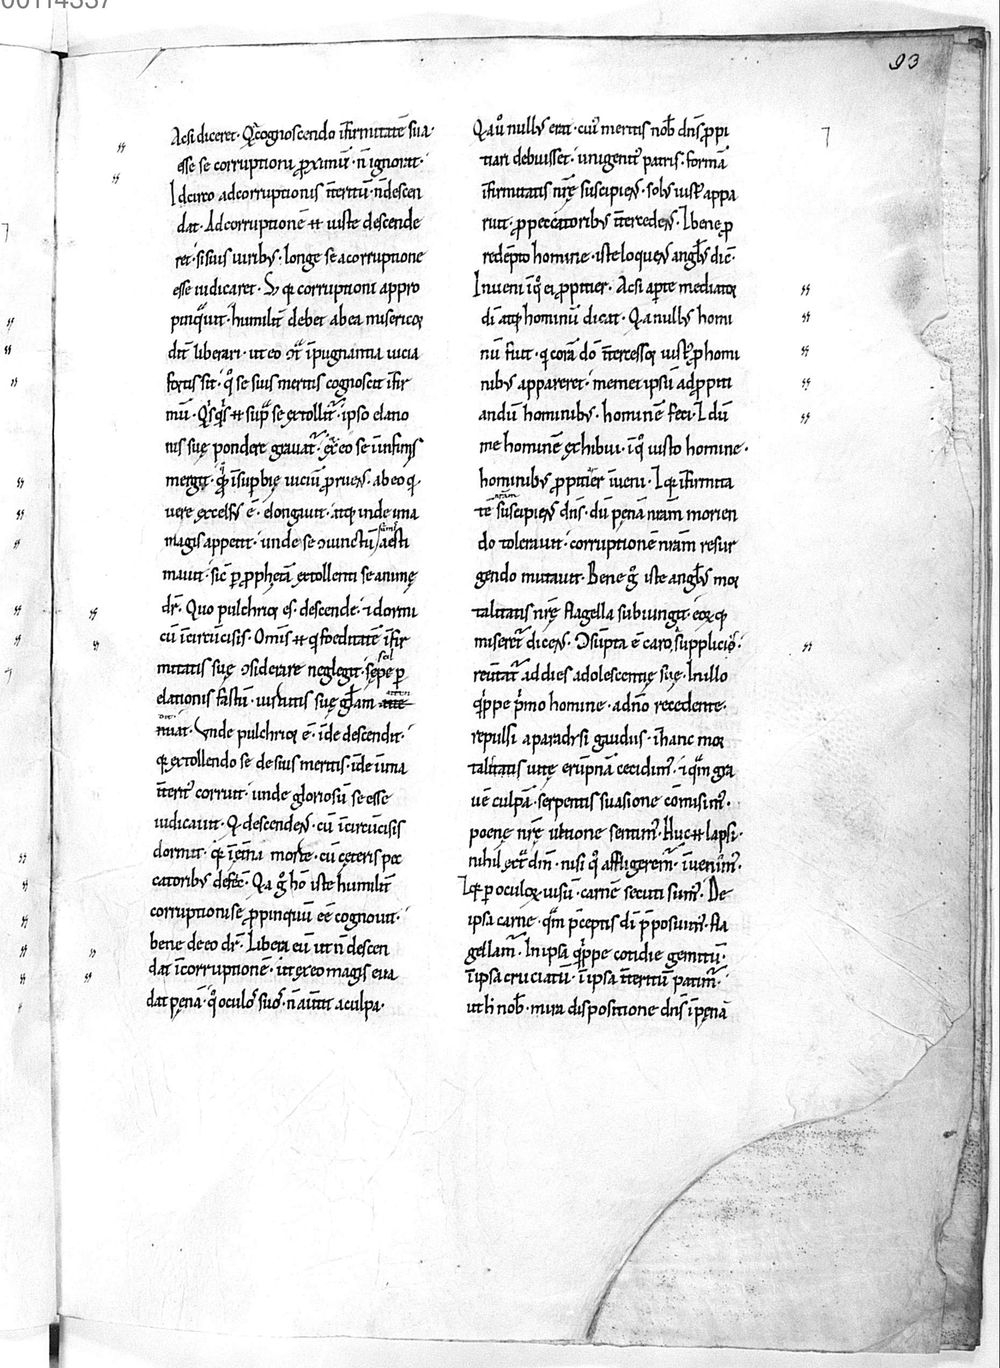 93
Acsi diceret· Q̄ cognoscendo īfirmitatē sua·
esse se corruptioni p̱ximū· n̄ ignorat·
Idcirco adcorruptionis īteritū· n̄ descen
dat· Adcorruptionē ⁊t iuste descende
ret· si suis uiribus· longe se acorruptione
esse iudicaret· S; q̄ corruptioni appro
pinquat· humilit̄ debet abea misericor
dit̄ liberari· ut eo ↄt̄ īpugnantia uicia
fortis sit· qͦ se suis meritis cognoscit īfir
mū· Qͥsqͥs ⁊t supͣ se extollit᷑· ipso elatio
nis suę pondere grauat᷑· ex eo se īinfimis
mergit· quͣ ī supbię uiciū p̱ruens· ab eo q·
uere excelsus ē· elongauit· atq; inde ima
magis appetit· unde se ↄiunctū sūmis aesti
mauit· sic̄ p̱ p̱phetā extollenti se animę
dr̄· Quo pulchrior es· descende· ⁊ dormi
cū īcircūcisis· Omīs ⁊t q̇ foeditatē īfir
mitatis suę ↄsiderare neglegit· sepe p̱
elationis fastū· uirtutis suę gl̄am atte
nuat· Unde pulchrior ē· īde descendit·
q̄ extollendo se de suis meritis· īde ī ima
īterit᷒ corruit· unde gloriosū se esse
iudicauit· Q descendens· cū īcircūcisis
dormit· q̄ ī ęt̄na morte· cū ceteris pec
catoribus defec̄· Q̄a g̊ hō iste humilit̄
corruptioni se p̱pinquū eē cognouit·
bene de eo dr̄· Libera eū ut n̄ descen
dat ī corruptionē· ut ex eo magis eua
dat penā· qͦ oculos suos· n̄ auertit a culpa·
Q̄a ů nullus erat· cui᷒ meritis nob̄ dn̄s p̱pi
tiari debuisset· unigenit᷒ patris· formā
īfirmitatis nr̄ę suscipiens· solus iust᷒ appa
ruit· p̱ peccatoribus ītercedens· ⁊ bene p̱
redēpto homine· iste loquens angl̄us dic̄·
Inueni ī qͦ ei p̱pitier· Acsi ap̱te mediator
dī atq; hominū dicat· Q̄a nullus homi
nū fuit· q̇ corā dō ītercessor iust᷒ p̱ homi
nibus appareret· memet ipsū ad p̱piti
andū hominibus· hominē feci· ⁊ dū
me hominē exhibui· ī qͦ iusto homine·
hominibus p̱pitier īueni· ⁊ q̄ īfirmita
tē suscipiens dn̄s· dū penā nr̄am morien
do tolerauit· corruptionē nr̄am resur
gendo mutauit· Bene g̊ iste angl̄us mor
talitatis nr̄ę flagella subiungit· eorq;
miseret᷑ dicens· Ↄsūpta ē caro supplicijs·
reūtat᷑ ad dies adolescentię suę· In illo
q̇ppe p̄mo homine· a dn̄o recedente·
repulsi a paradysi gaudiis· ī hanc mor
talitatis uitę erūpnā cecidim᷒· ⁊ quͣm gra
uē culpā· serpentis suasione cōmisim᷒·
poenę nr̄ę ultione sentim᷒· Huc ⁊t lapsi·
nihil ext̄ dm̄· nisi qͦ affligerem᷑· īuenim᷒·
⁊ q̄ p̱ oculor uisū· carnē secuti sum᷒· De
ipsa carne· quͣm p̄ceptis dī p̄posuim᷒· fla
gellam᷑· In ipsa q̇ppe cotidie gemitū·
ī ipsa cruciatū· ī ipsa īteritū patim᷑·
ut h̄ nob̄· mira dispositione dn̄s ī penā